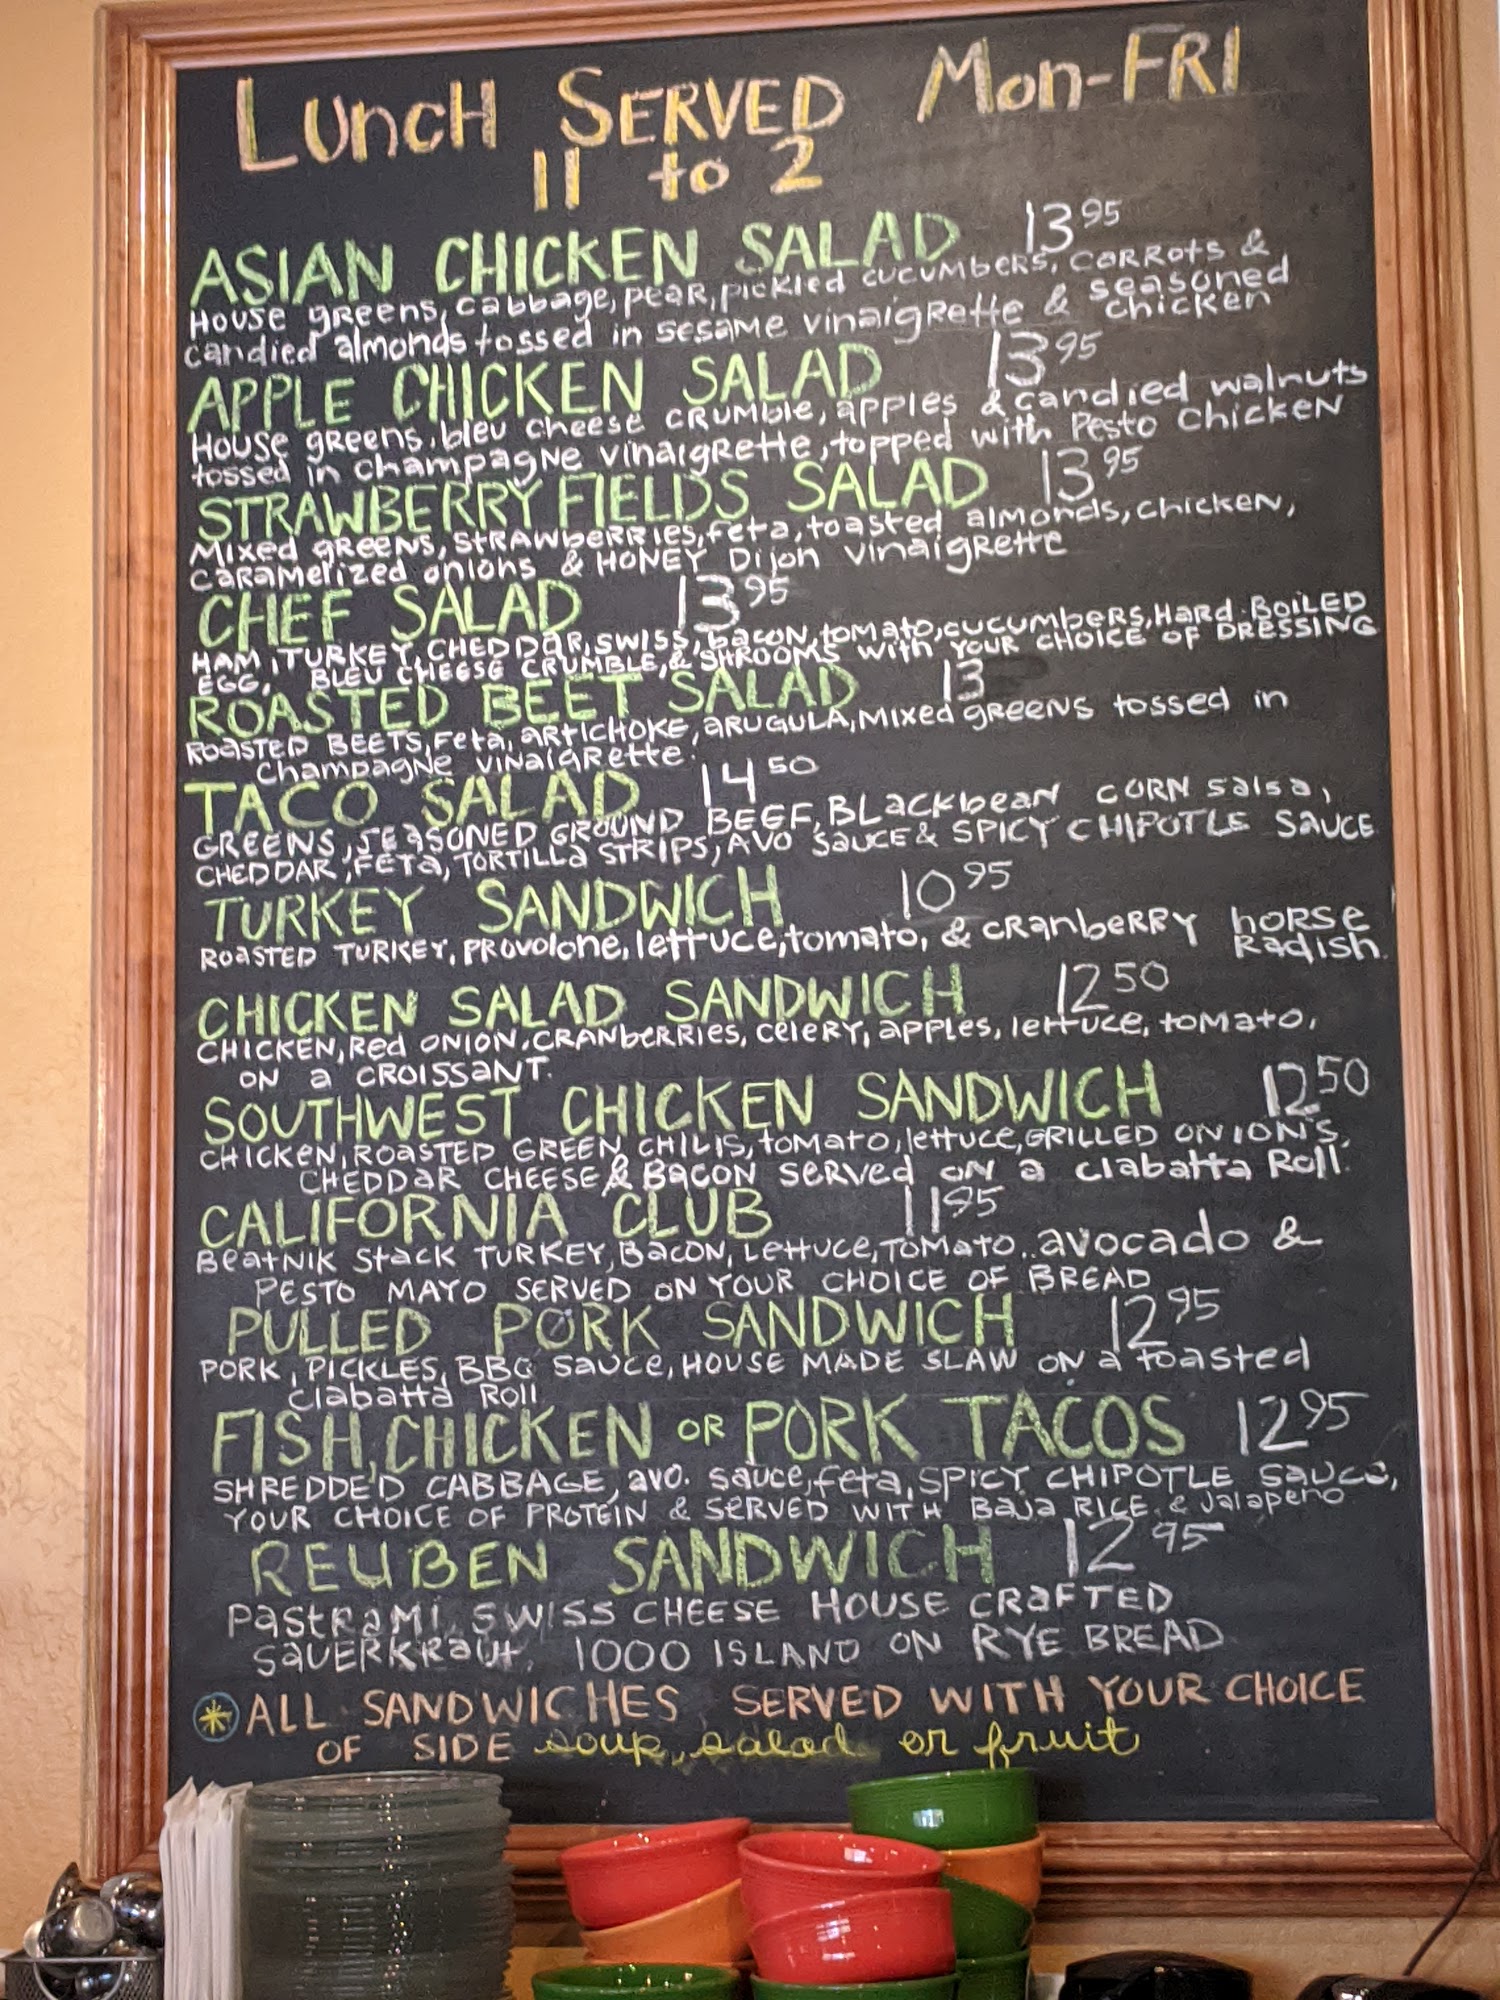 Lunch Served Mon-Fri
11 to 2
ASIAN CHICKEN SALAD 13.95
House greens, cabbage, pear, pickled cucumbers, corrots &
candied almonds tossed in sesame vinaigrette & seasoned chicken
APPLE CHICKEN SALAD 13.95
House greens, bleu cheese crumble, apples & candied walnuts
tossed in champagne vinaigrette, topped with Pesto Chicken
STRAWBERRY FIELDS SALAD 13.95
Mixed greens, strawberries, feta, toasted almonds, chicken,
caramelized onions & HONEY Dijon vinaigrette
CHEF SALAD 13.95
HAM, TURKEY, CHEDDAR, SWISS, bacon, tomato, cucumbers, Hard-BOILED
EGG, BLEU CHEESE CRUMBLE, & SHROOMS with YOUR CHOICE OF DRESSING
ROASTED BEET SALAD 13
ROASTED BEETS, Feta, ARTICHOKE, ARUGULA, Mixed greens tossed in
champagne vinaigrette.
TACO SALAD 14.50
GREENS, SEASONED GROUND BEEF, BLackbean CORN salsa,
CHEDDAR, FETA, TORTILLA STRIPS, AVO SAUCE & SPICY CHIPOTLE SAUCE
TURKEY SANDWICH 10.95
ROASTED TURKEY, PROVOLONE, lettuce, tomato, & CRANBERRY HORSE
Radish.
CHICKEN SALAD SANDWICH 12.50
CHICKEN, Red ONION, CRANBERRIES, CELERY, apples, lettuce, tomato,
ON a CROISSANT.
SOUTHWEST CHICKEN SANDWICH 12.50
CHICKEN, ROASTED GREEN CHILIS, tomato, lettuce, GRILLED ONION'S,
CHEDDAR CHEESE & BACON SERVED ON a Ciabatta Roll.
CALIFORNIA CLUB 11.95
Beatnik Stack TURKEY, BACON, Lettuce, TOMATO, avocado &
PESTO MAYO SERVED ON YOUR CHOICE OF BREAD
PULLED PORK SANDWICH 12.95
PORK, PICKLES, BBQ SAUCE, HOUSE MADE SLAW ON a toasted
Ciabatta Roll
FISH, CHICKEN OR PORK TACOS 12.95
SHREDDED CABBAGE, avo. sauce, feta, SPICY CHIPOTLE SAUCE,
YOUR CHOICE OF PROTEIN & SERVED WITH BAJA RICE & Jalapeno
REUBEN SANDWICH 12.95
Pastrami, SWISS CHEESE HOUSE CRAFTED
SAUERKRAUT, 1000 ISLAND ON RYE BREAD
* ALL SANDWICHES SERVED WITH YOUR CHOICE
OF SIDE soup, salad or fruit